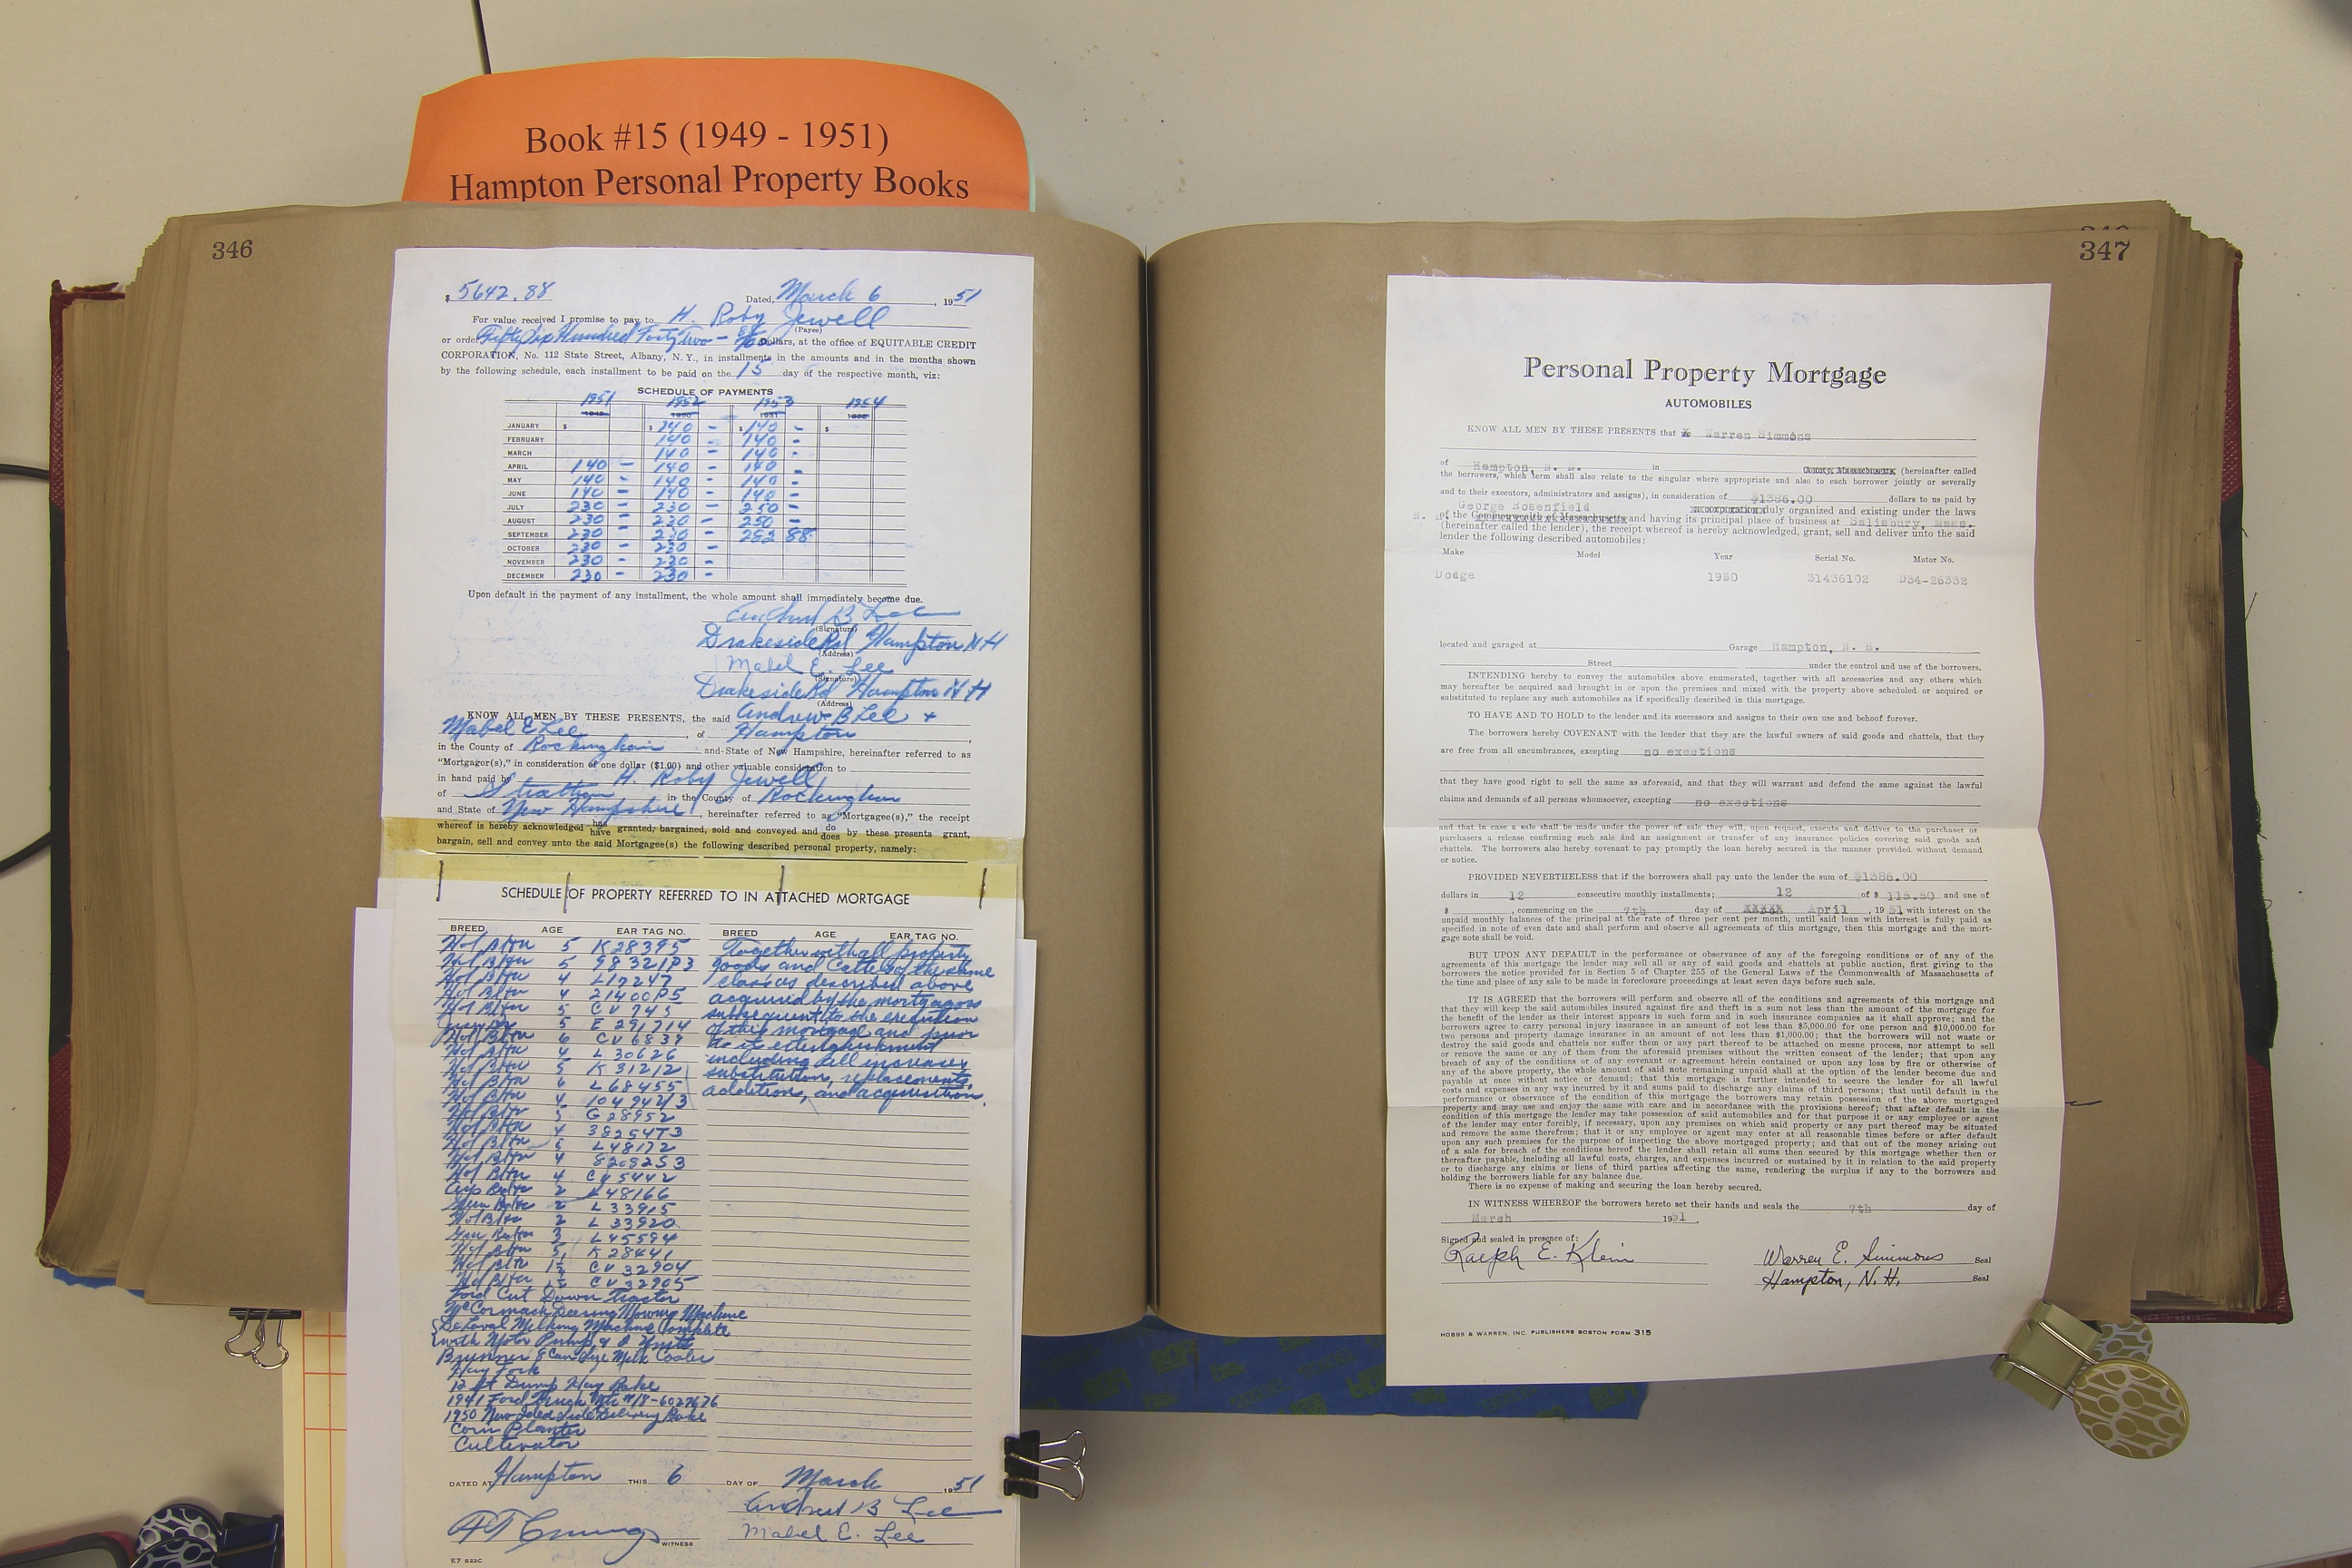 Book #15 (1949 - 1951)
Hampton Personal Property Books
346
$ 5642.88 Dated, March 6, 1951
For value received I promise to pay to H. Roby Jewell
(Payee)
or order Fifty Six Hundred Forty Two - 88/100 Dollars, at the office of EQUITABLE CREDIT
CORPORATION, No. 112 State Street, Albany, N. Y., in installments in the amounts and in the months shown
by the following schedule, each installment to be paid on the 15 day of the respective month, viz:
SCHEDULE OF PAYMENTS
1951 1952 1953 1954
1949 1950 1951 1952
JANUARY $ $ 140 - $ 140 - $
FEBRUARY 140 - 140 -
MARCH 140 - 140 -
APRIL 140 - 140 - 140 -
MAY 140 - 140 - 140 -
JUNE 140 - 140 - 140 -
JULY 230 - 230 - 250 -
AUGUST 230 - 230 - 250 -
SEPTEMBER 230 - 230 - 252 88
OCTOBER 230 - 230 -
NOVEMBER 230 - 230 -
DECEMBER 230 - 230 -
Upon default in the payment of any installment, the whole amount shall immediately become due.
Andrew B Lee
(Signature)
Drakeside Rd Hampton N H
(Address)
Mabel E. Lee
(Signature)
Drakeside Rd Hampton N H
(Address)
KNOW ALL MEN BY THESE PRESENTS, the said Andrew B Lee +
Mabel E Lee, of Hampton,
in the County of Rockingham and State of New Hampshire, hereinafter referred to as
"Mortgagor(s)," in consideration of one dollar ($1.00) and other valuable consideration to
in hand paid by H. Roby Jewell
of Stratham in the County of Rockingham
and State of New Hampshire, hereinafter referred to as "Mortgagee(s)," the receipt
whereof is hereby acknowledged has have granted, bargained, sold and conveyed and do does by these presents grant,
bargain, sell and convey unto the said Mortgagee(s) the following described personal property, namely:
SCHEDULE OF PROPERTY REFERRED TO IN ATTACHED MORTGAGE
BREED AGE EAR TAG NO. BREED AGE EAR TAG NO.
Hol B/tn 5 K 28395 Together with all property
Hol B/tn 5 98321P3 goods and Cattle of the same
Hol B/tn 4 L17247 class as described above
Hol B/tn 4 21400P5 acquired by the mortgagors
Hol B/tn 5 CV 745 subsequent to the execution
5 E 291714 of this mortgage and prior
Hol B/tn 6 CV 6839 to its extinguishment
Hol B/tn 4 L 30626 including all increases
Hol B/tn 5 K 31212 substitution, replacements,
Hol B/tn 6 L 68455 addition, and acquisition.
Hol B/tn 4 10494213
Hol B/tn 5 G 28952
Hol B/tn 4 3825473
Hol B/tn 5 L48172
Hol B/tn 4 8208253
Hol B/tn 4 CV 5442
2 L48166
2 L 33915
Hol B/tn 2 L 33920
3 L45594
Hol B/tn 5 K 28441
Hol B/tn 1½ CV 32904
Hol B/tn 1½ CV 32905
Ford Cut Down Tractor
McCormack Deering Mowing Machine
De Laval Milking Machine Complete
with Motor Pump & 2 Units
8 Can Size Milk Cooler
Hay Fork
12 ft Dump Hay Rake
1941 Ford Truck Mtr #18-6027676
1950 New Idea Side Delivery Rake
Corn Planter
Cultivator
DATED AT Hampton THIS 6 DAY OF March 1951
Andrew B Lee
WITNESS Mabel E. Lee
E7 523C
347
Personal Property Mortgage
AUTOMOBILES
KNOW ALL MEN BY THESE PRESENTS that Warren Simmons
of Hampton, N. H. in County, Massachusetts, (hereinafter called
the borrowers, which term shall also relate to the singular where appropriate and also to each borrower jointly or severally
and to their executors, administrators and assigns), in consideration of $1386.00 dollars to us paid by
George Rosenfield a corporation duly organized and existing under the laws
of the Commonwealth of Massachusetts and having its principal place of business at Salisbury, Mass.
(hereinafter called the lender), the receipt whereof is hereby acknowledged, grant, sell and deliver unto the said
lender the following described automobiles:
Make Model Year Serial No. Motor No.
Dodge 1950 31436102 D34-26332
located and garaged at Garage Hampton, N. H.
Street under the control and use of the borrowers.
INTENDING hereby to convey the automobiles above enumerated, together with all accessories and any others which
may hereafter be acquired and brought in or upon the premises and mixed with the property above scheduled or acquired or
substituted to replace any such automobiles as if specifically described in this mortgage.
TO HAVE AND TO HOLD to the lender and its successors and assigns to their own use and behoof forever.
The borrowers hereby COVENANT with the lender that they are the lawful owners of said goods and chattels, that they
are free from all encumbrances, excepting no exections
that they have good right to sell the same as aforesaid, and that they will warrant and defend the same against the lawful
claims and demands of all persons whomsoever, excepting no exections
and that in case a sale shall be made under the power of sale they will, upon request, execute and deliver to the purchaser or
purchasers a release confirming such sale and an assignment or transfer of any insurance policies covering said goods and
chattels. The borrowers also hereby covenant to pay promptly the loan hereby secured in the manner provided without demand
or notice.
PROVIDED NEVERTHELESS that if the borrowers shall pay unto the lender the sum of $1386.00
dollars in 12 consecutive monthly installments; 12 of $ 115.50 and one of
$ , commencing on the 7th day of XXXXX April, 1951 with interest on the
unpaid monthly balances of the principal at the rate of three per cent per month, until said loan with interest is fully paid as
specified in note of even date and shall perform and observe all agreements of this mortgage, then this mortgage and the mort-
gage note shall be void.
BUT UPON ANY DEFAULT in the performance or observance of any of the foregoing conditions or of any of the
agreements of this mortgage the lender may sell all or any of said goods and chattels at public auction, first giving to the
borrowers the notice provided for in Section 5 of Chapter 255 of the General Laws of the Commonwealth of Massachusetts of
the time and place of any sale to be made in foreclosure proceedings at least seven days before such sale.
IT IS AGREED that the borrowers will perform and observe all of the conditions and agreements of this mortgage and
that they will keep the said automobiles insured against fire and theft in a sum not less than the amount of the mortgage for
the benefit of the lender as their interest appears in such form and in such insurance companies as it shall approve; and the
borrowers agree to carry personal injury insurance in an amount of not less than $5,000.00 for one person and $10,000.00 for
two persons and property damage insurance in an amount of not less than $1,000.00; that the borrowers will not waste or
destroy the said goods and chattels nor suffer them or any part thereof to be attached on mesne process, nor attempt to sell
or remove the same or any of them from the aforesaid premises without the written consent of the lender; that upon any
breach of any of the conditions or of any covenant or agreement herein contained or upon any loss by fire or otherwise of
any of the above property, the whole amount of said note remaining unpaid shall at the option of the lender become due and
payable at once without notice or demand; that this mortgage is further intended to secure the lender for all lawful
costs and expenses in any way incurred by it and sums paid to discharge any claims of third persons; that until default in the
performance or observance of the condition of this mortgage the borrowers may retain possession of the above mortgaged
property and may use and enjoy the same with care and in accordance with the provisions hereof; that after default in the
condition of this mortgage the lender may take possession of said automobiles and for that purpose it or any employee or agent
of the lender may enter forcibly, if necessary, upon any premises on which said property or any part thereof may be situated
and remove the same therefrom; that it or any employee or agent may enter at all reasonable times before or after default
upon any such premises for the purpose of inspecting the above mortgaged property; and that out of the money arising out
of a sale for breach of the conditions hereof the lender shall retain all sums then secured by this mortgage whether then or
thereafter payable, including all lawful costs, charges, and expenses incurred or sustained by it in relation to the said property
or to discharge any claims or liens of third parties affecting the same, rendering the surplus if any to the borrowers and
holding the borrowers liable for any balance due.
There is no expense of making and securing the loan hereby secured.
IN WITNESS WHEREOF the borrowers hereto set their hands and seals the 7th day of
March 1951.
Signed and sealed in presence of:
Ralph E. Klein Warren E. Simmons Seal
Hampton, N. H. Seal
HOBBS & WARREN, INC. PUBLISHERS BOSTON FORM 315